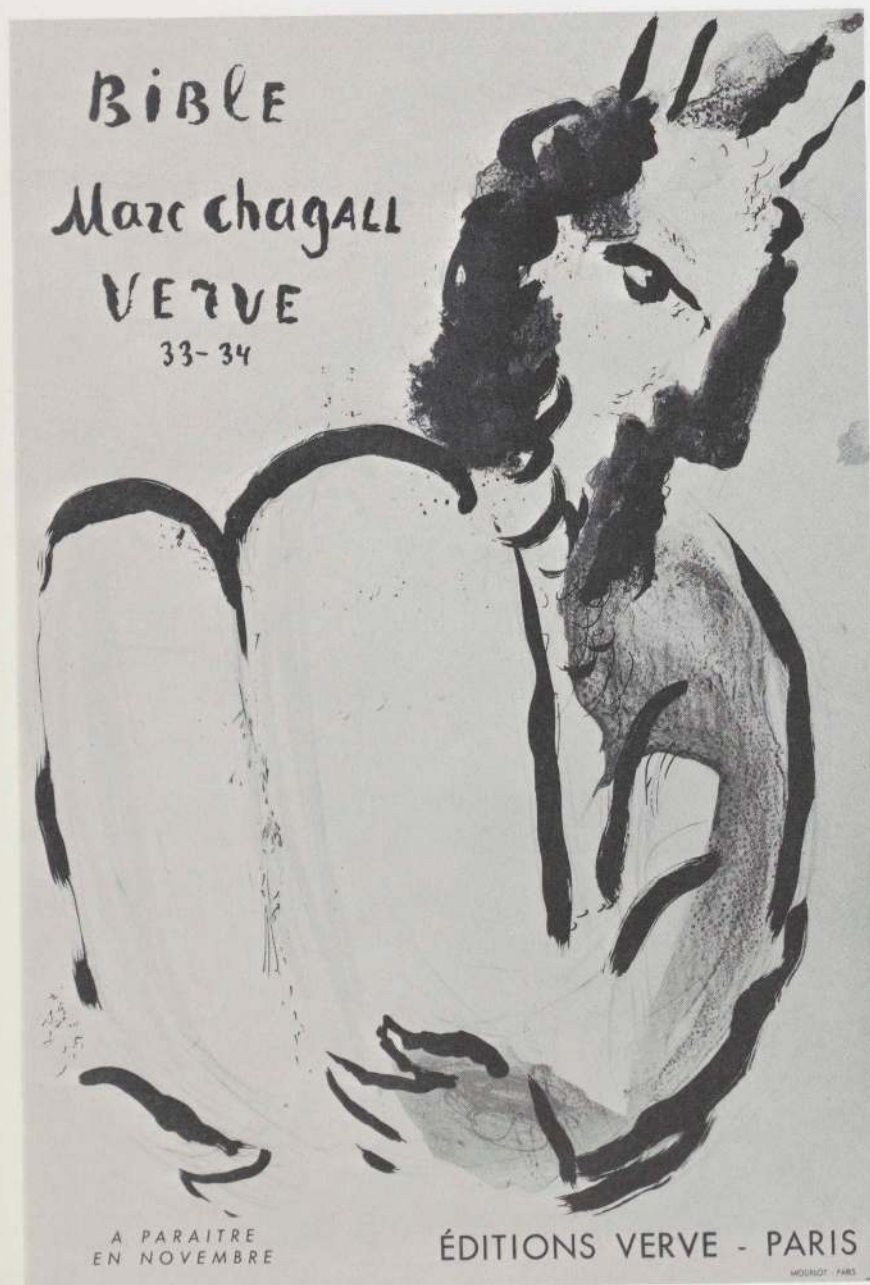 BiBlE
Marc chagALL
VERVE
33-34
A PARAITRE
EN NOVEMBRE
ÉDITIONS VERVE - PARIS
MOURLOT - PARIS